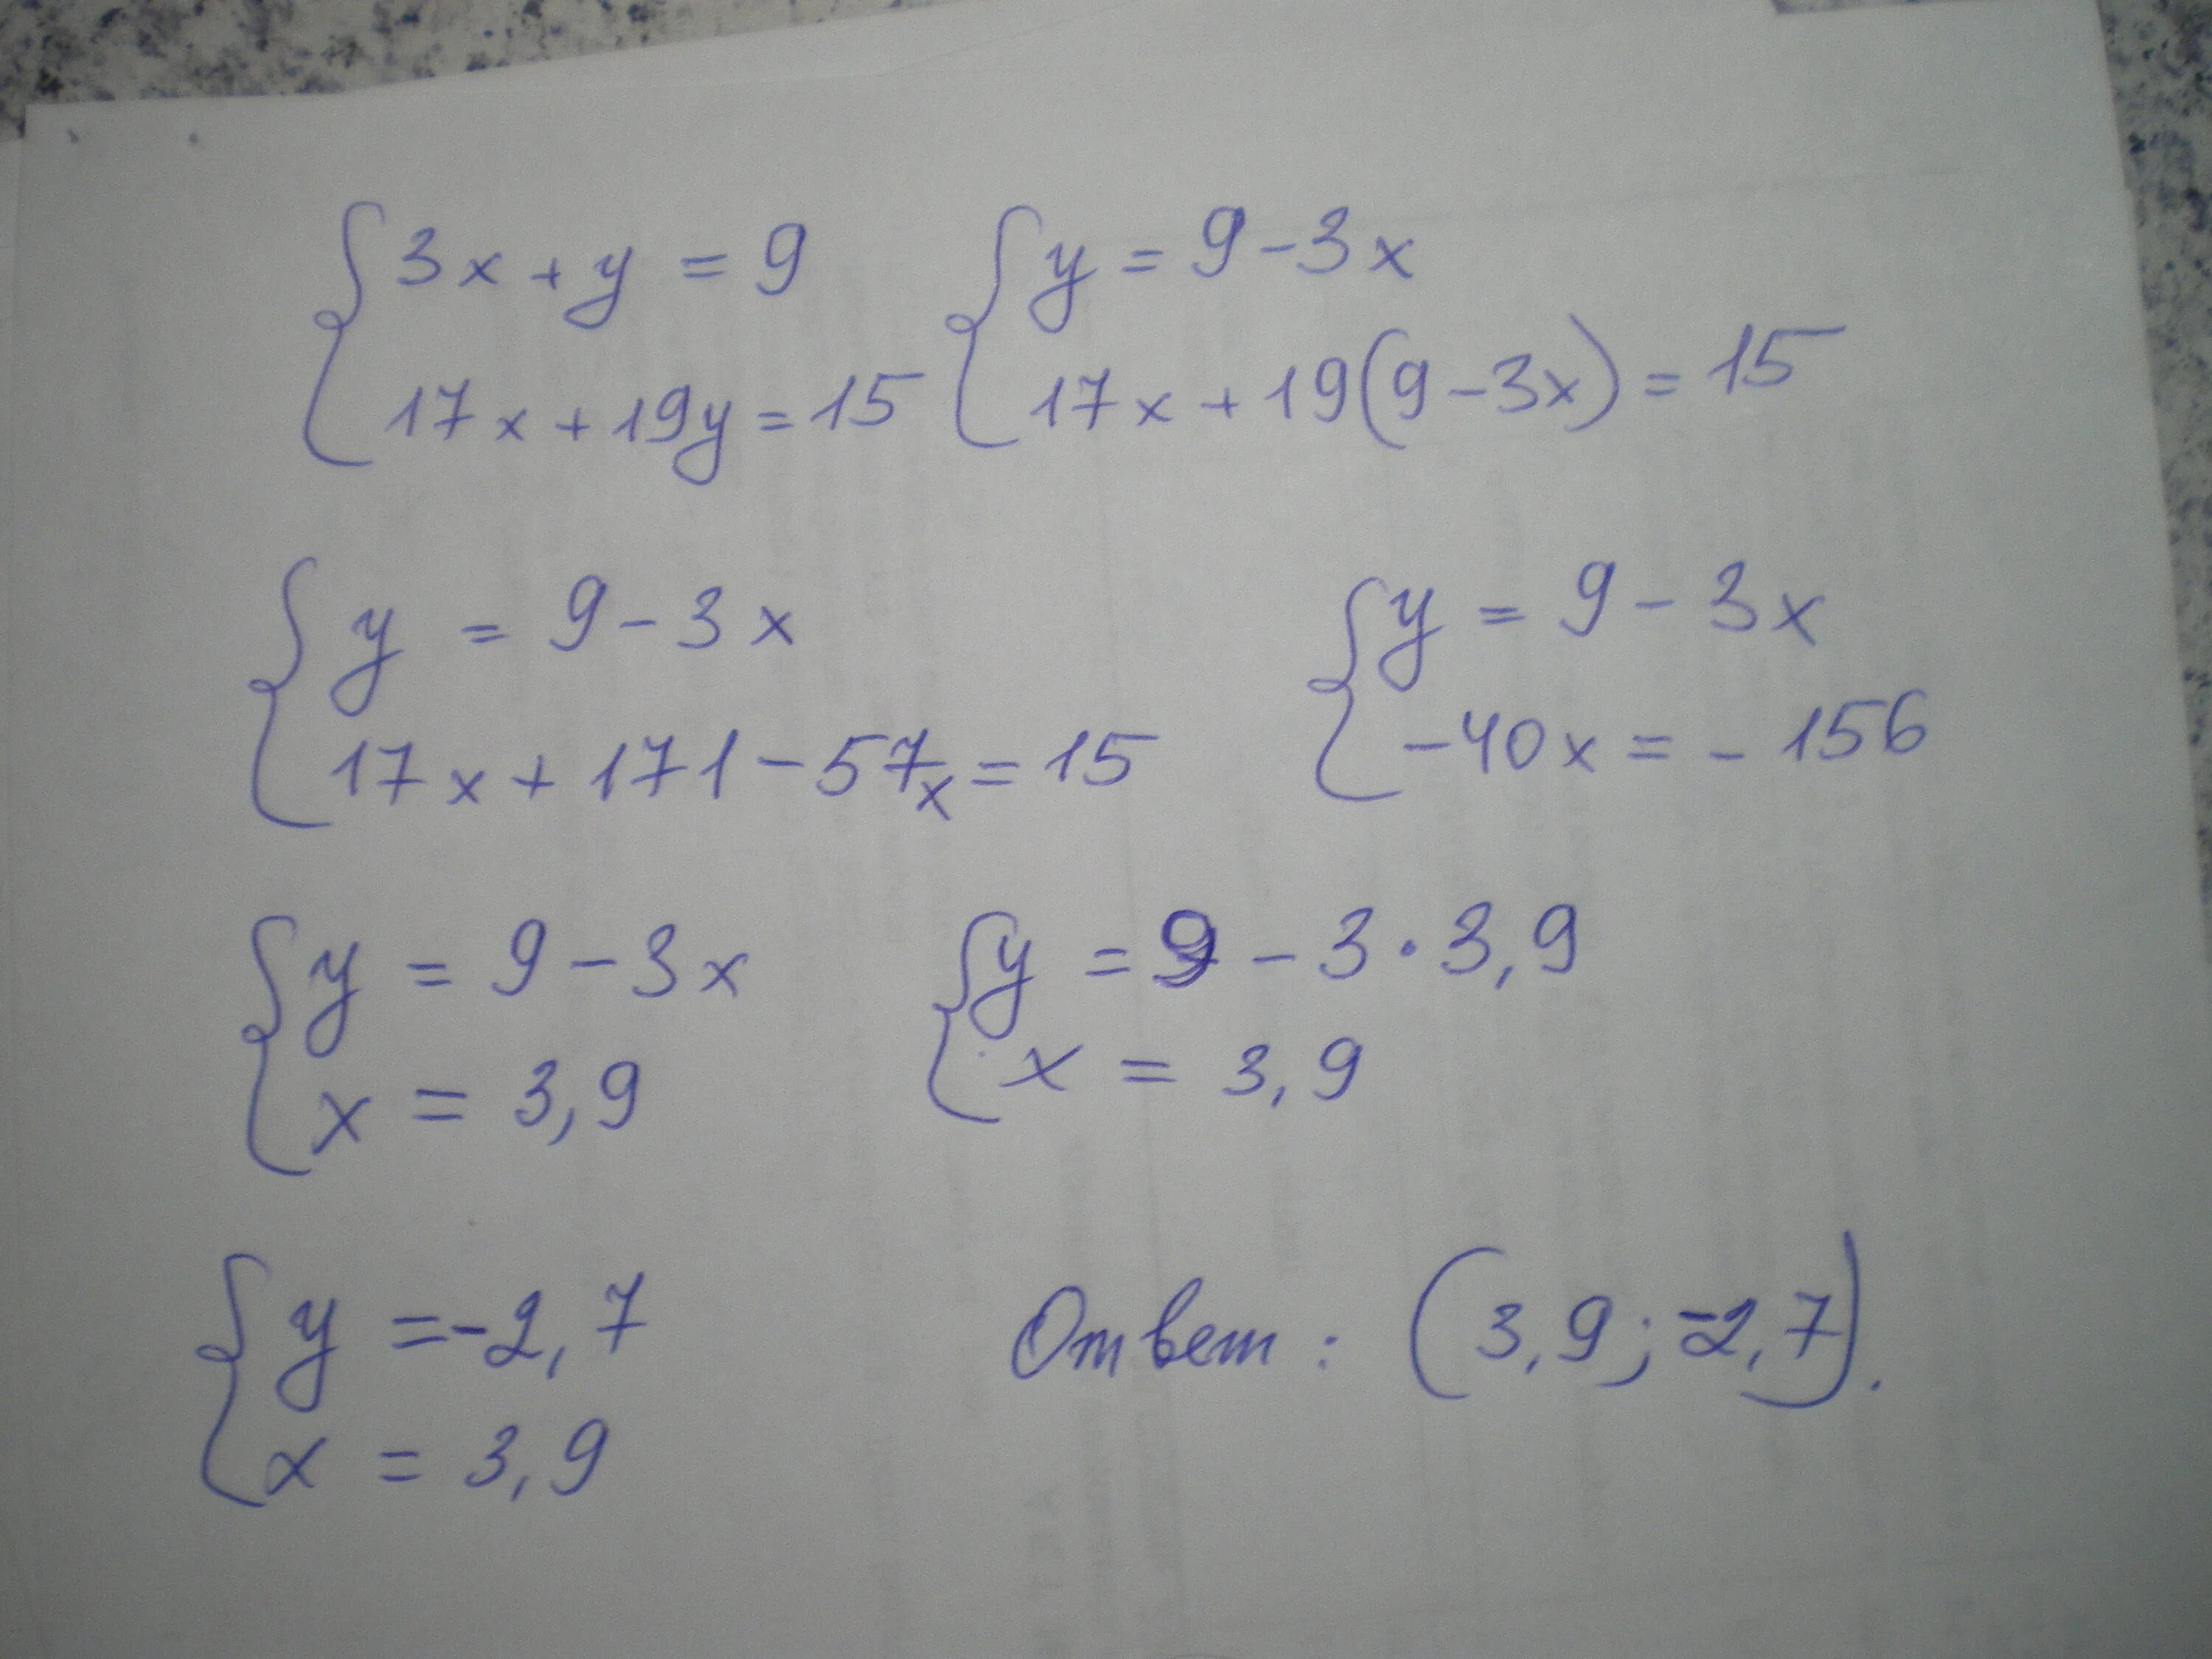 3x + y = 9
17x + 19y = 15
y = 9 - 3x
17x + 19(9 - 3x) = 15
y = 9 - 3x
17x + 171 - 57x = 15
y = 9 - 3x
-40x = - 156
y = 9 - 3x
x = 3,9
y = 9 - 3 · 3,9
x = 3,9
y = -2,7
x = 3,9
Ответ: (3,9; -2,7).